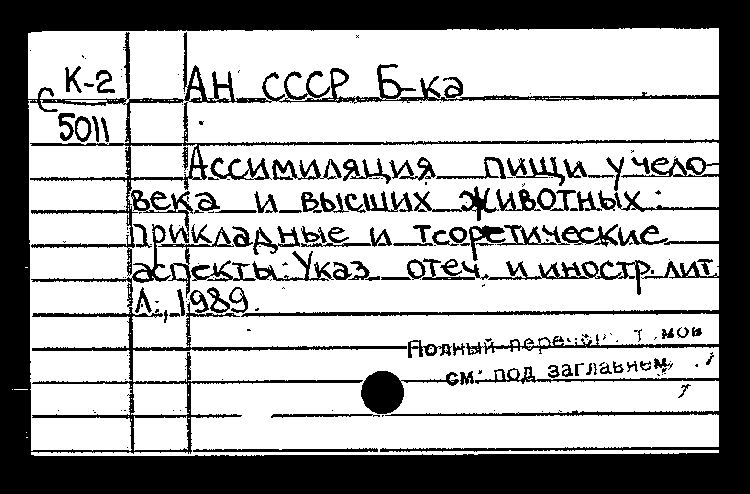 К-2 АН СССР Б-ка
С
5011
Ассимиляция пищи у чело-
века и высших животных:
прикладные и теоретические
аспекты: Указ. отеч. и иностр. лит.
Л., 1989.
Полный
см. под заглавием